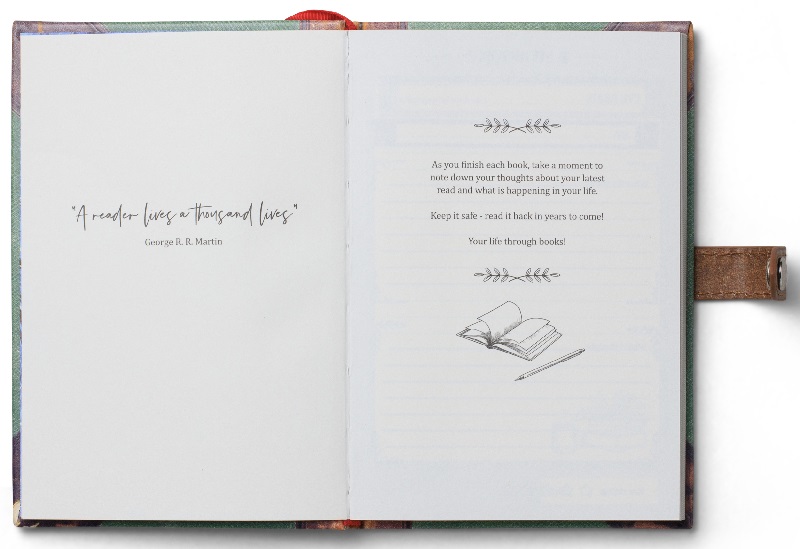 "A reader lives a thousand lives"
George R. R. Martin
As you finish each book, take a moment to
note down your thoughts about your latest
read and what is happening in your life.
Keep it safe - read it back in years to come!
Your life through books!